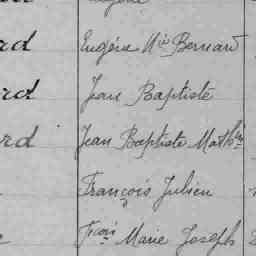 rd Eugène Mie Bernard
rd Jean Baptiste
rd Jean Baptiste Math
François Julien
Fcois Marie Joseph